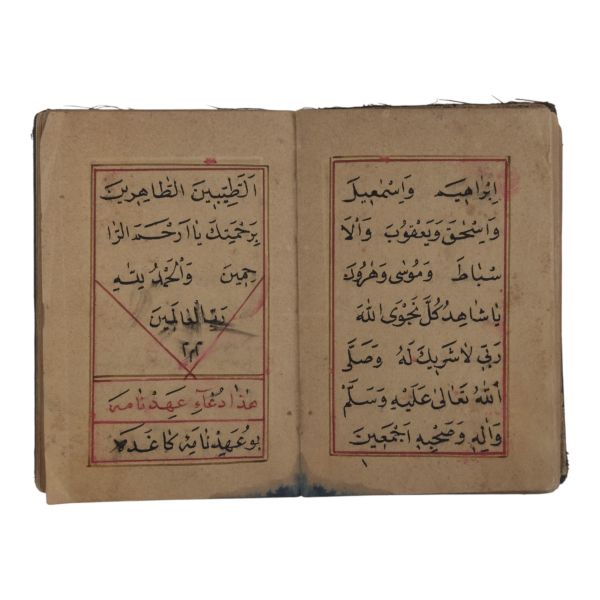 اِبْرَاهِيمَ وَاِسْمٰعِيلَ
وَاِسْحٰقَ وَيَعْقُوبَ وَالْاَ
سْبَاطَ وَمُوسٰى وَهٰرُونَ
يَا شَاهِدُ كُلَّ نَجْوَى اللّٰهُ
رَبِّي لَا شَرِيكَ لَهُ وَصَلَّى
اللّٰهُ تَعَالٰى عَلَيْهِ وَسَلَّمْ
وَاٰلِهِ وَصَحْبِهِ اَجْمَعِينَ
اَلطَّيِّبِينَ الطَّاهِرِينَ
بِرَحْمَتِكَ يَا اَرْحَمَ الرَّا
حِمِينَ وَالْحَمْدُ لِلّٰهِ
رَبِّ الْعَالَمِينَ
هٰذَا دُعَاءِ عَهِدْنَامَهْ
بُو عَهِدْنَامَهِ كَاغَدَهْ